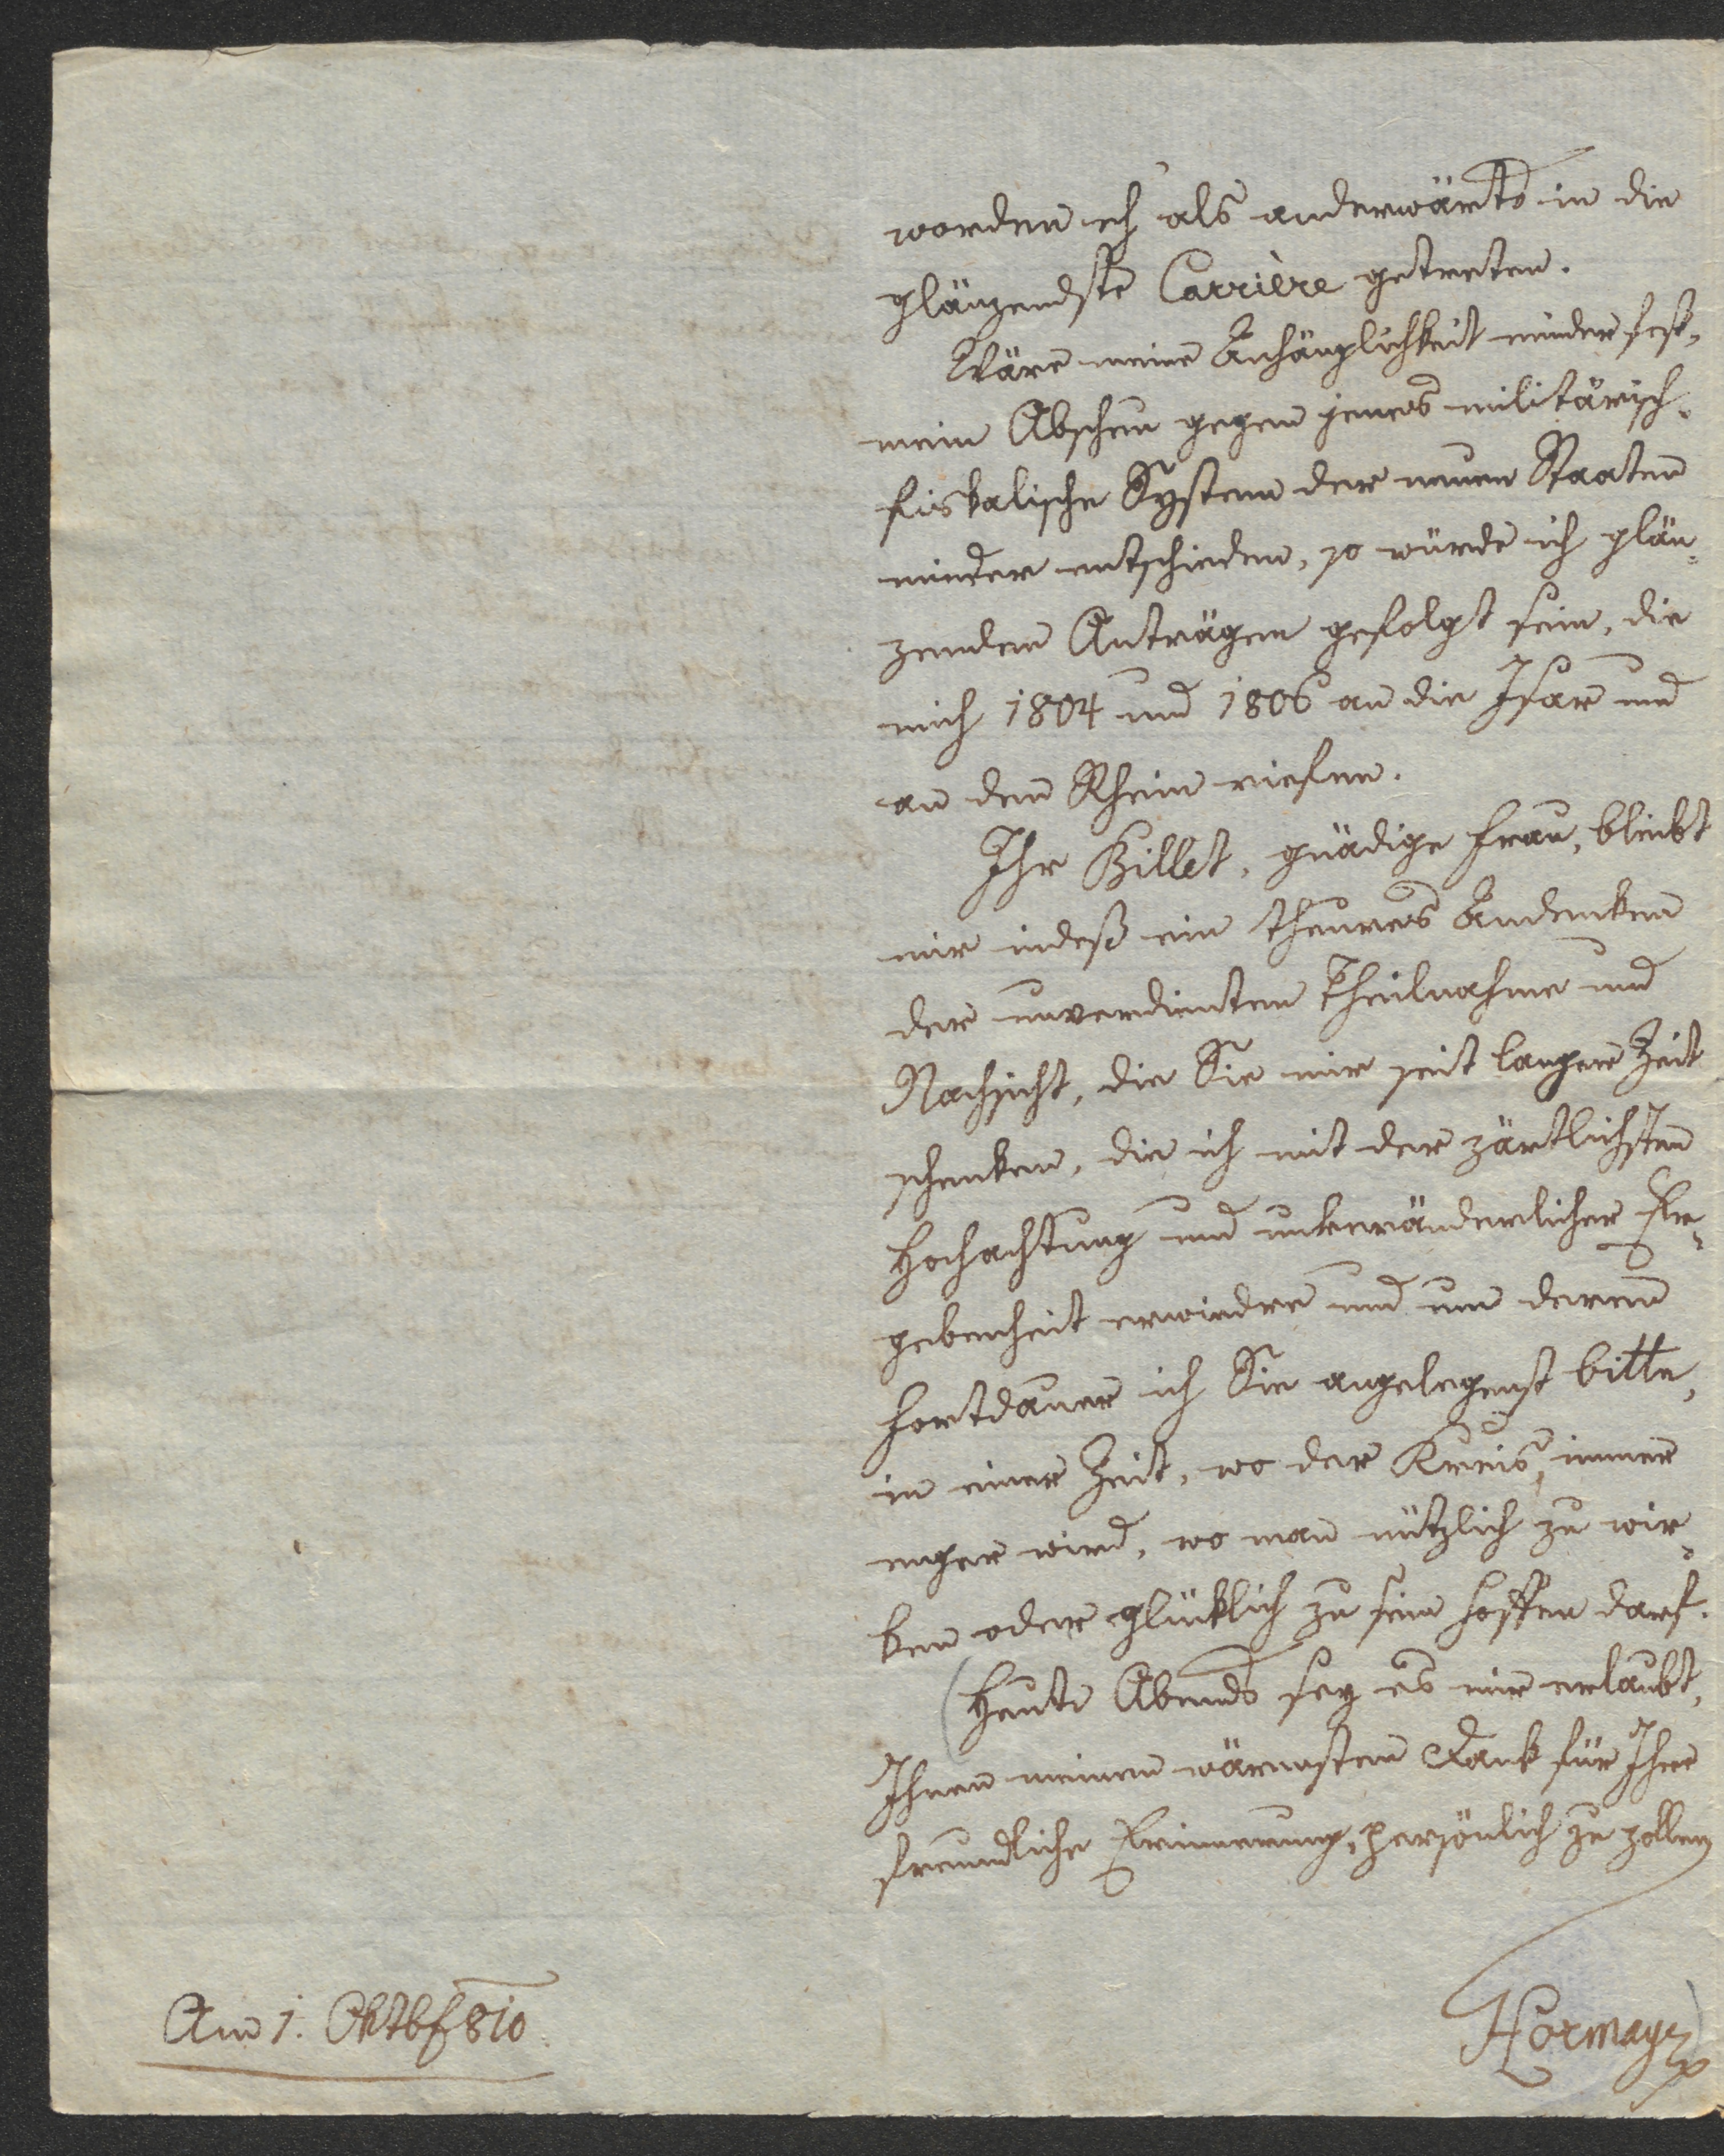 worden eh als anderwärts in die
glänzendste Carrière getreten.
Wäre meine Anhänglichkeit minder fest,
mein Abscheu gegen jenes militärisch-
fiskalische System der neuen Staaten
minder entschieden, so würde ich glän-
zenden Anträgen gefolgt sein, die
mich 1804 und 1806 an die Isar und
an den Rhein riefen.
Ihr Billet, gnädige Frau, bleibt
mir indeß ein theures Andenken
der unverdienten Theilnahme und
Nachsicht, die Sie mir seit langer Zeit
schenken, die ich mit der zärtlichsten
Hochachtung und unveränderlicher Er-
gebenheit erwiedre und um deren
Fortdauer ich Sie angelegenst bitte,
in einer Zeit, wo der Kreis, immer
enger wird, wo man nützlich zu wir-
ken oder glücklich zu sein hoffen darf.
(Heute Abends sey es mir erlaubt,
Ihnen meinen wärmsten Dank für Ihre
freundliche Erinnerung, persönlich zu zollen
Hormayr)
Am 1. Oktbr 810